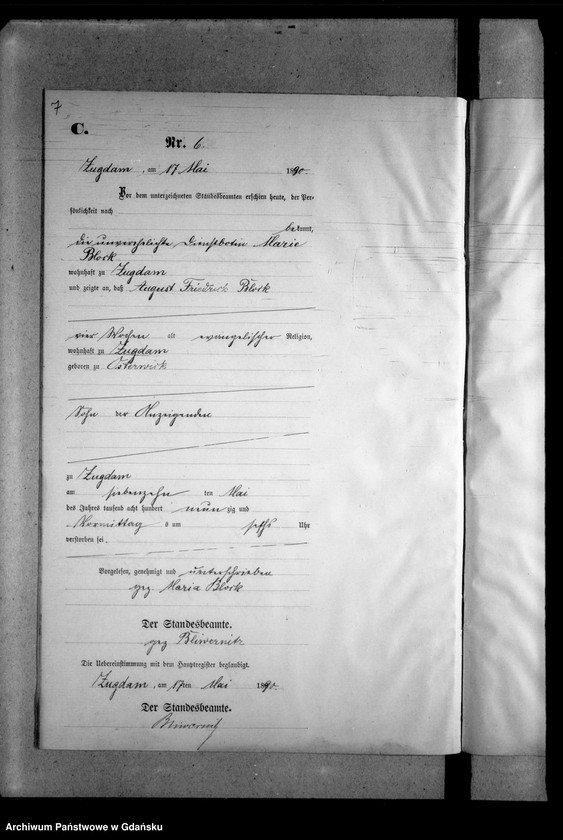 7
C.
Nr. 6.
Zugdam, am 17 Mai 1890.
Vor dem unterzeichneten Standesbeamten erschien heute, der Per-
sönlichkeit nach
bekannt,
die unverehelichte Dienstboten Marie
Block
wohnhaft zu Zugdam
und zeigte an, daß August Friedrich Block
vier Wochen alt evangelischer Religion,
wohnhaft zu Zugdam
geboren zu Osterwick
Sohn der Anzeigenden
zu Zugdam
am siebenzehn ten Mai
des Jahres tausend acht hundert neun zig und
Vormittag s um sechs Uhr
verstorben sei.
Vorgelesen, genehmigt und unterschrieben
gez. Maria Block
Der Standesbeamte.
gez
Die Uebereinstimmung mit dem Hauptregister beglaubigt.
Zugdam, am 17ten Mai 1890.
Der Standesbeamte.
Archiwum Państwowe w Gdańsku